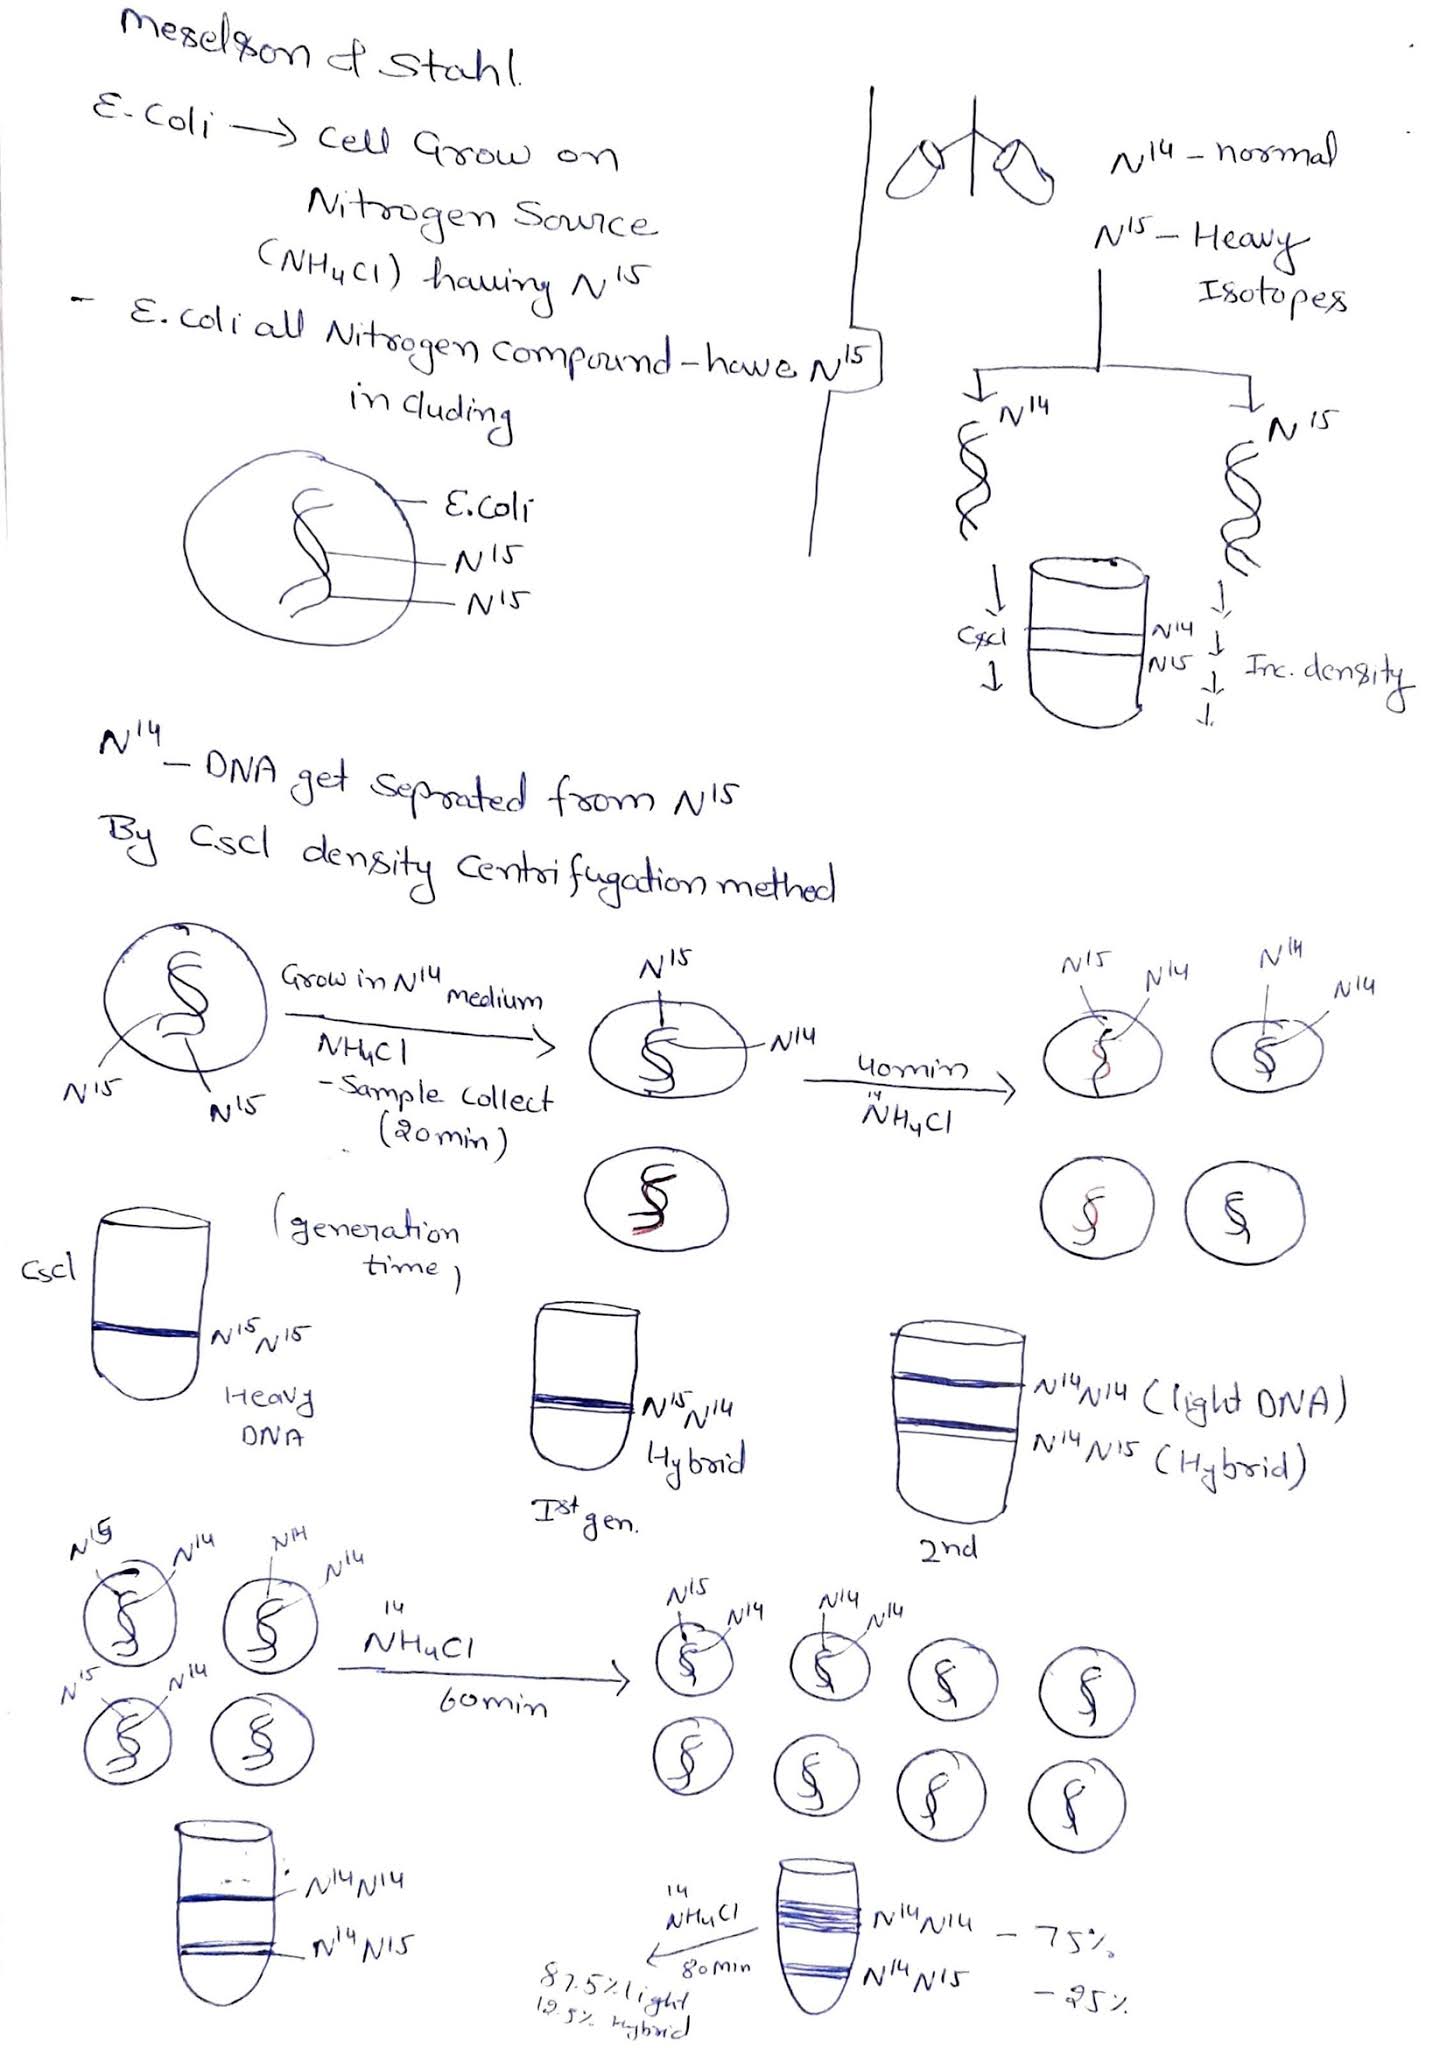 Meselson & Stahl.
E. Coli → Cell Grow on
Nitrogen Source
(NH4Cl) having N15
- E. coli all Nitrogen compound - have N15
including
E. Coli
N15
N15
N14 - normal
N15 - Heavy
Isotopes
N14
N15
CsCl
N14
N15
Inc. density
N14 - DNA get seprated from N15
By CsCl density Centrifugation method
N15
N15
Grow in N14 medium
NH4Cl
- Sample Collect
(20min)
(generation
time)
N15
N14
40min
14
NH4Cl
N15
N14
N14
N14
CsCl
N15 N15
Heavy
DNA
N15 N14
Hybrid
Ist gen.
N14 N14 (light DNA)
N14 N15 (Hybrid)
2nd
N15
N14
N14
N14
N15
N14
14
NH4Cl
60min
N15
N14
N14
N14
N14N14
N14N15
14
NH4Cl
80min
87.5% light
12.5% Hybrid
N14N14 - 75%
N14N15 - 25%